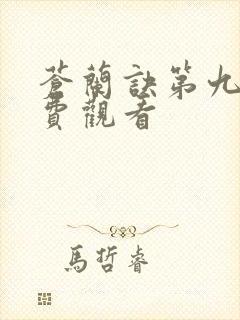 蒼蘭訣第九
費觀看
馬哲睿